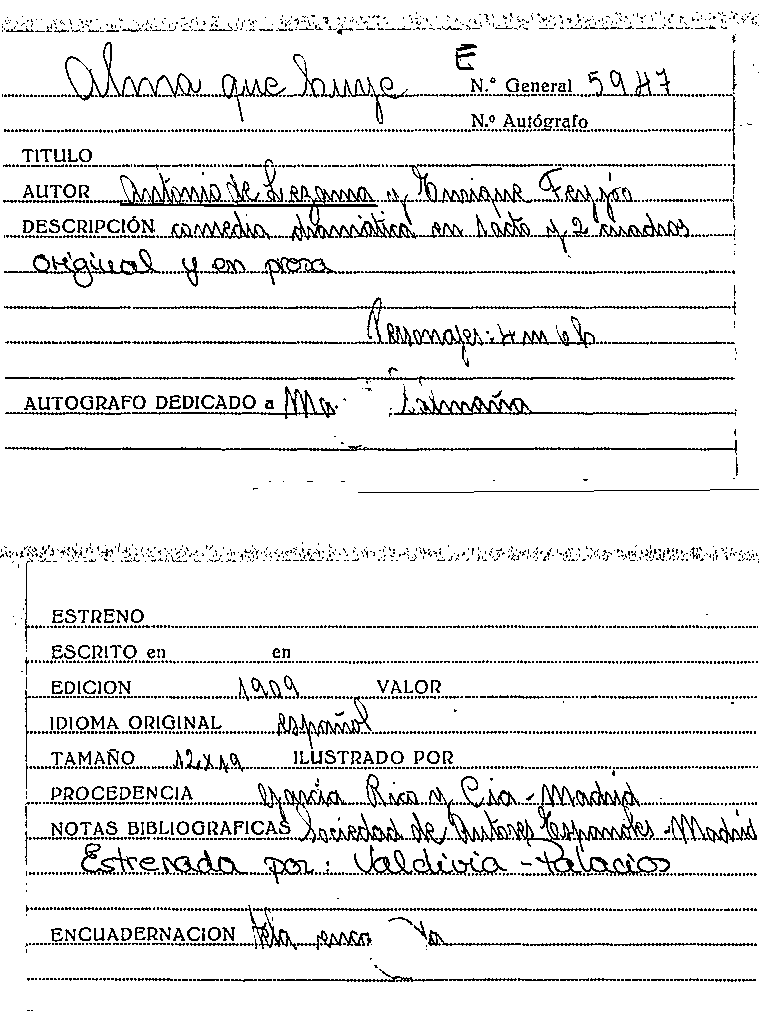 Alma que huye E
N.º General 5947
N.º Autógrafo
TITULO
AUTOR Antonio de Lezama y Enrique Feyjóo
DESCRIPCIÓN comedia dramática en 1 acto y 2 cuadros
original y en prosa
Personajes: 4 m 6 h
AUTOGRAFO DEDICADO a
ESTRENO
ESCRITO en en
EDICION 1909 VALOR
IDIOMA ORIGINAL español
TAMAÑO 12x19 ILUSTRADO POR
PROCEDENCIA García Rico y Cia - Madrid
NOTAS BIBLIOGRAFICAS Sociedad de Autores Españoles - Madrid
Estrenada por: Valdivia - Palacios
ENCUADERNACION tela